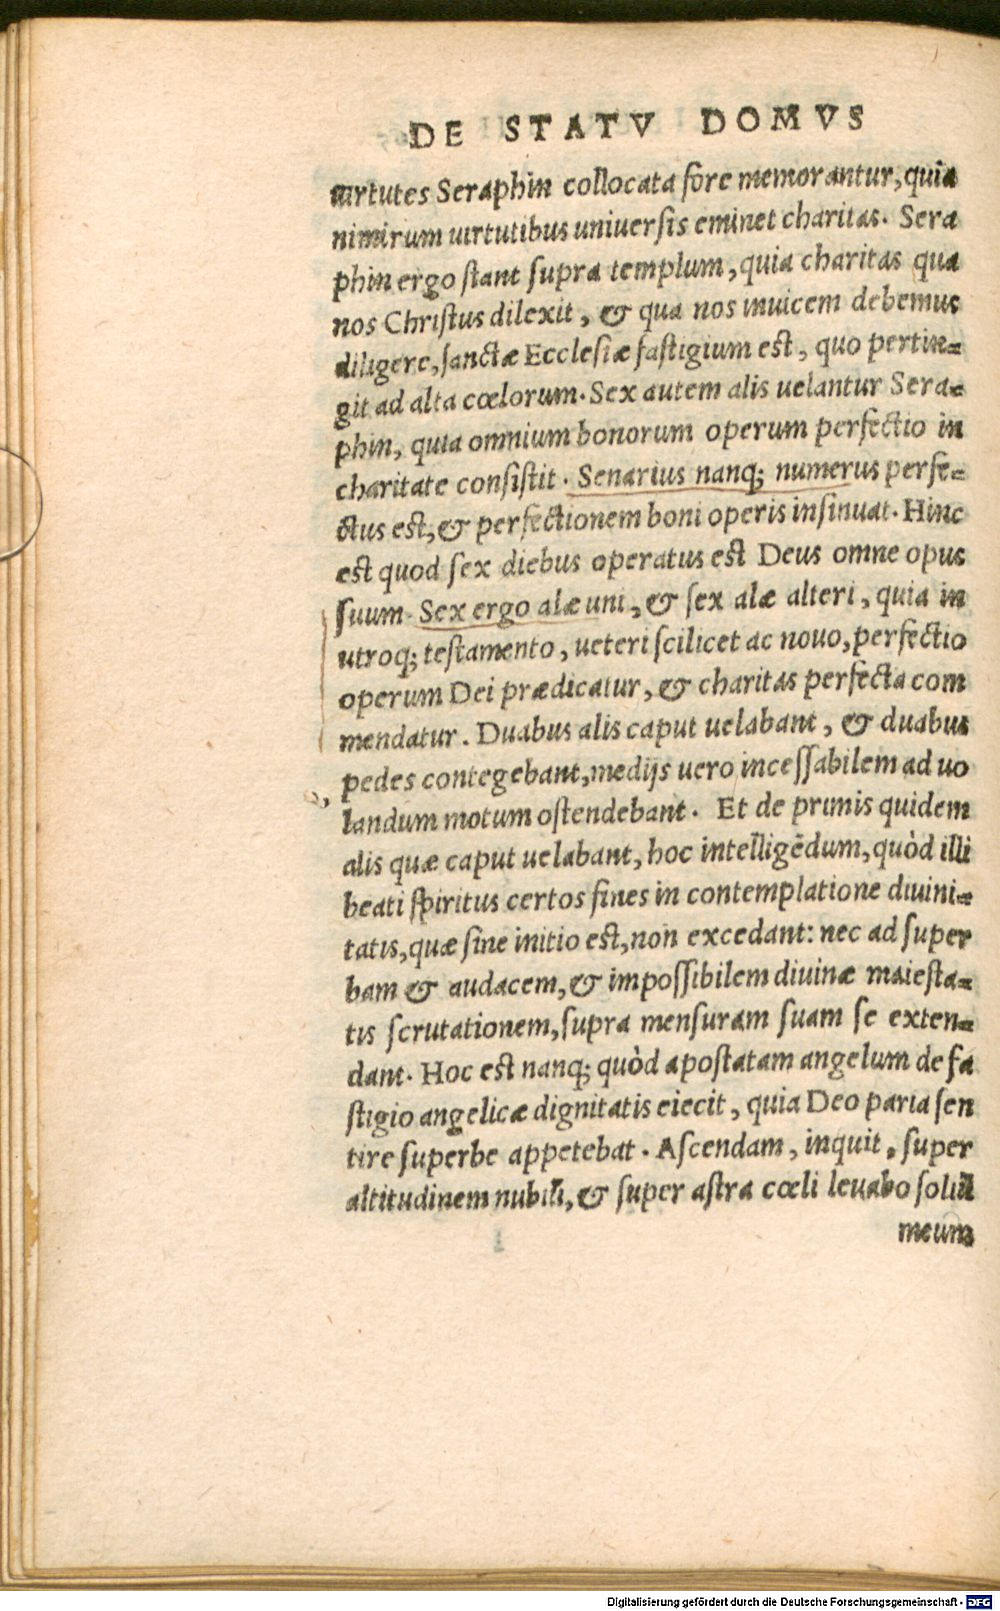 DE STATV DOMVS
uirtutes Seraphin collocata fore memorantur, quia
nimirum uirtutibus uniuersis eminet charitas. Sera
phin ergo stant supra templum, quia charitas qua
nos Christus dilexit, & qua nos inuicem debemus
diligere, sanctæ Ecclesiæ fastigium est, quo pertin-
git ad alta cœlorum. Sex autem alis uelantur Sera-
phin, quia omnium bonorum operum perfectio in
charitate consistit. Senarius nanq; numerus perfe-
ctus est, & perfectionem boni operis insinuat. Hinc
est quod sex diebus operatus est Deus omne opus
suum. Sex ergo alæ uni, & sex alæ alteri, quia in
utroq; testamento, ueteri scilicet ac nouo, perfectio
operum Dei prædicatur, & charitas perfecta com
mendatur. Duabus alis caput uelabant, & duabus
pedes contegebant, medijs uero incessabilem ad uo
landum motum ostendebant. Et de primis quidem
alis quæ caput uelabant, hoc intelligēdum, quòd illi
beati spiritus certos fines in contemplatione diuini-
tatis, quæ sine initio est, non excedant: nec ad super
bam & audacem, & impossibilem diuinæ maiesta-
tis scrutationem, supra mensuram suam se exten-
dant. Hoc est nanq; quòd apostatam angelum de fa
stigio angelicæ dignitatis eiecit, quia Deo paria sen
tire superbe appetebat. Ascendam, inquit, super
altitudinem nubiū, & super astra cœli leuabo soliū
meum
Digitalisierung gefördert durch die Deutsche Forschungsgemeinschaft - DFG